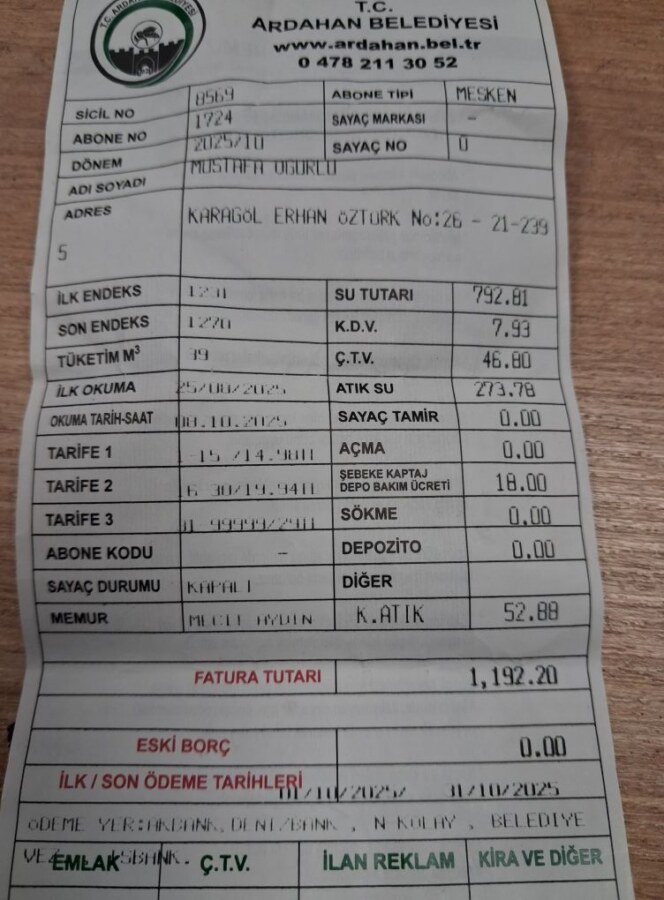 T.C.
ARDAHAN BELEDİYESİ
www.ardahan.bel.tr
0 478 211 30 52
SİCİL NO 8569 ABONE TİPİ MESKEN
ABONE NO 1724 SAYAÇ MARKASI -
DÖNEM 2025/10 SAYAÇ NO 0
ADI SOYADI MUSTAFA
ADRES KARAGöL ERHAN öZTüRK No:26 - 21-239
5
İLK ENDEKS 1231 SU TUTARI 792.81
SON ENDEKS 1270 K.D.V. 7.93
TÜKETİM M³ 39 Ç.T.V. 46.80
İLK OKUMA 25/08/2025 ATIK SU 273.78
OKUMA TARİH-SAAT 08.10.2025 SAYAÇ TAMİR 0.00
TARİFE 1 AÇMA 0.00
TARİFE 2 ŞEBEKE KAPTAJ DEPO BAKIM ÜCRETİ 18.00
TARİFE 3 SÖKME 0.00
ABONE KODU - DEPOZİTO 0.00
SAYAÇ DURUMU KAPALI DİĞER
MEMUR AYDIN K.ATIK 52.88
FATURA TUTARI 1,192.20
ESKİ BORÇ 0.00
İLK / SON ÖDEME TARİHLERİ 01/10/2025/ 31/10/2025
ÖDEME YER:AKBANK,DENİZBANK , N KOLAY , BELEDİYE
EMLAK Ç.T.V. İLAN REKLAM KİRA VE DİĞER